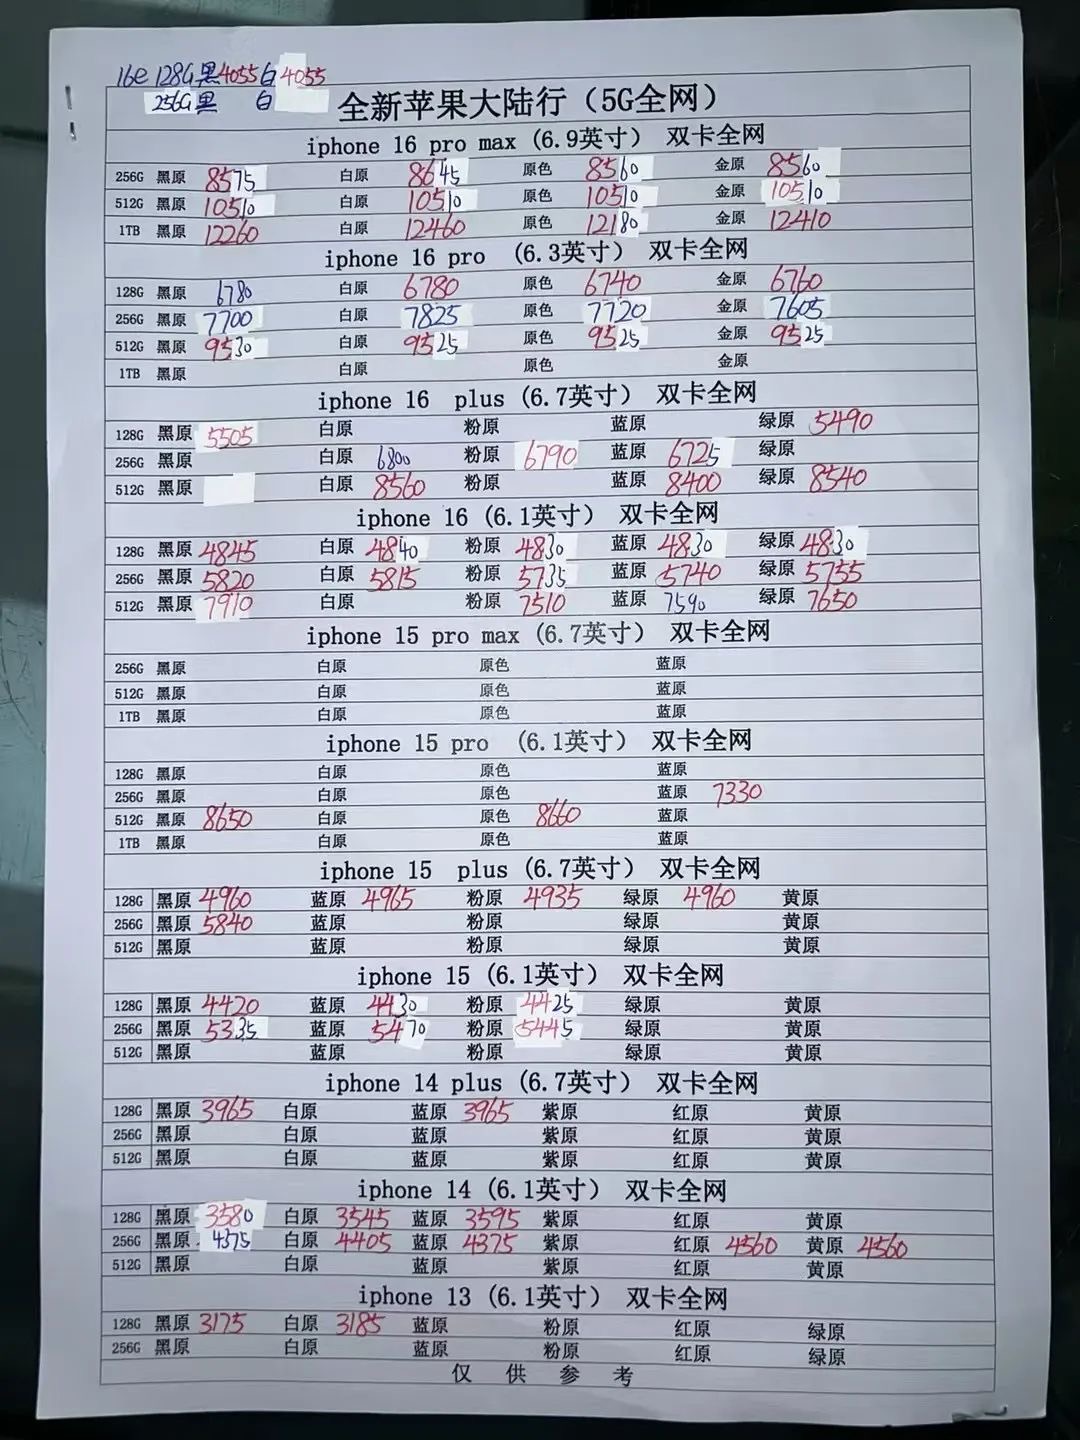 16e 128G 黑4055 白4055
256G 黑 白
全新苹果大陆行（5G全网）
iphone 16 pro max (6.9英寸) 双卡全网
256G 黑原 8575 白原 8645 原色 8560 金原 8560
512G 黑原 10510 白原 10510 原色 10510 金原 10510
1TB 黑原 12260 白原 12460 原色 12180 金原 12410
iphone 16 pro (6.3英寸) 双卡全网
128G 黑原 6780 白原 6780 原色 6740 金原 6760
256G 黑原 7700 白原 7825 原色 7720 金原 7605
512G 黑原 9530 白原 9525 原色 9525 金原 9525
1TB 黑原 白原 原色 金原
iphone 16 plus (6.7英寸) 双卡全网
128G 黑原 5505 白原 粉原 蓝原 绿原 5490
256G 黑原 白原 6800 粉原 6790 蓝原 6725 绿原
512G 黑原 白原 8560 粉原 蓝原 8400 绿原 8540
iphone 16 (6.1英寸) 双卡全网
128G 黑原 4845 白原 4840 粉原 4830 蓝原 4830 绿原 4830
256G 黑原 5820 白原 5815 粉原 5735 蓝原 5740 绿原 5755
512G 黑原 7910 白原 粉原 7510 蓝原 7590 绿原 7650
iphone 15 pro max (6.7英寸) 双卡全网
256G 黑原 白原 原色 蓝原
512G 黑原 白原 原色 蓝原
1TB 黑原 白原 原色 蓝原
iphone 15 pro (6.1英寸) 双卡全网
128G 黑原 白原 原色 蓝原
256G 黑原 白原 原色 蓝原 7330
512G 黑原 8650 白原 原色 8660 蓝原
1TB 黑原 白原 原色 蓝原
iphone 15 plus (6.7英寸) 双卡全网
128G 黑原 4960 蓝原 4965 粉原 4935 绿原 4960 黄原
256G 黑原 5840 蓝原 粉原 绿原 黄原
512G 黑原 蓝原 粉原 绿原 黄原
iphone 15 (6.1英寸) 双卡全网
128G 黑原 4420 蓝原 4430 粉原 4425 绿原 黄原
256G 黑原 5335 蓝原 5470 粉原 5445 绿原 黄原
512G 黑原 蓝原 粉原 绿原 黄原
iphone 14 plus (6.7英寸) 双卡全网
128G 黑原 3965 白原 蓝原 3965 紫原 红原 黄原
256G 黑原 白原 蓝原 紫原 红原 黄原
512G 黑原 白原 蓝原 紫原 红原 黄原
iphone 14 (6.1英寸) 双卡全网
128G 黑原 3580 白原 3545 蓝原 3595 紫原 红原 黄原
256G 黑原 4375 白原 4405 蓝原 4375 紫原 红原 4560 黄原 4560
512G 黑原 白原 蓝原 紫原 红原 黄原
iphone 13 (6.1英寸) 双卡全网
128G 黑原 3175 白原 3185 蓝原 粉原 红原 绿原
256G 黑原 白原 蓝原 粉原 红原 绿原
仅供参考